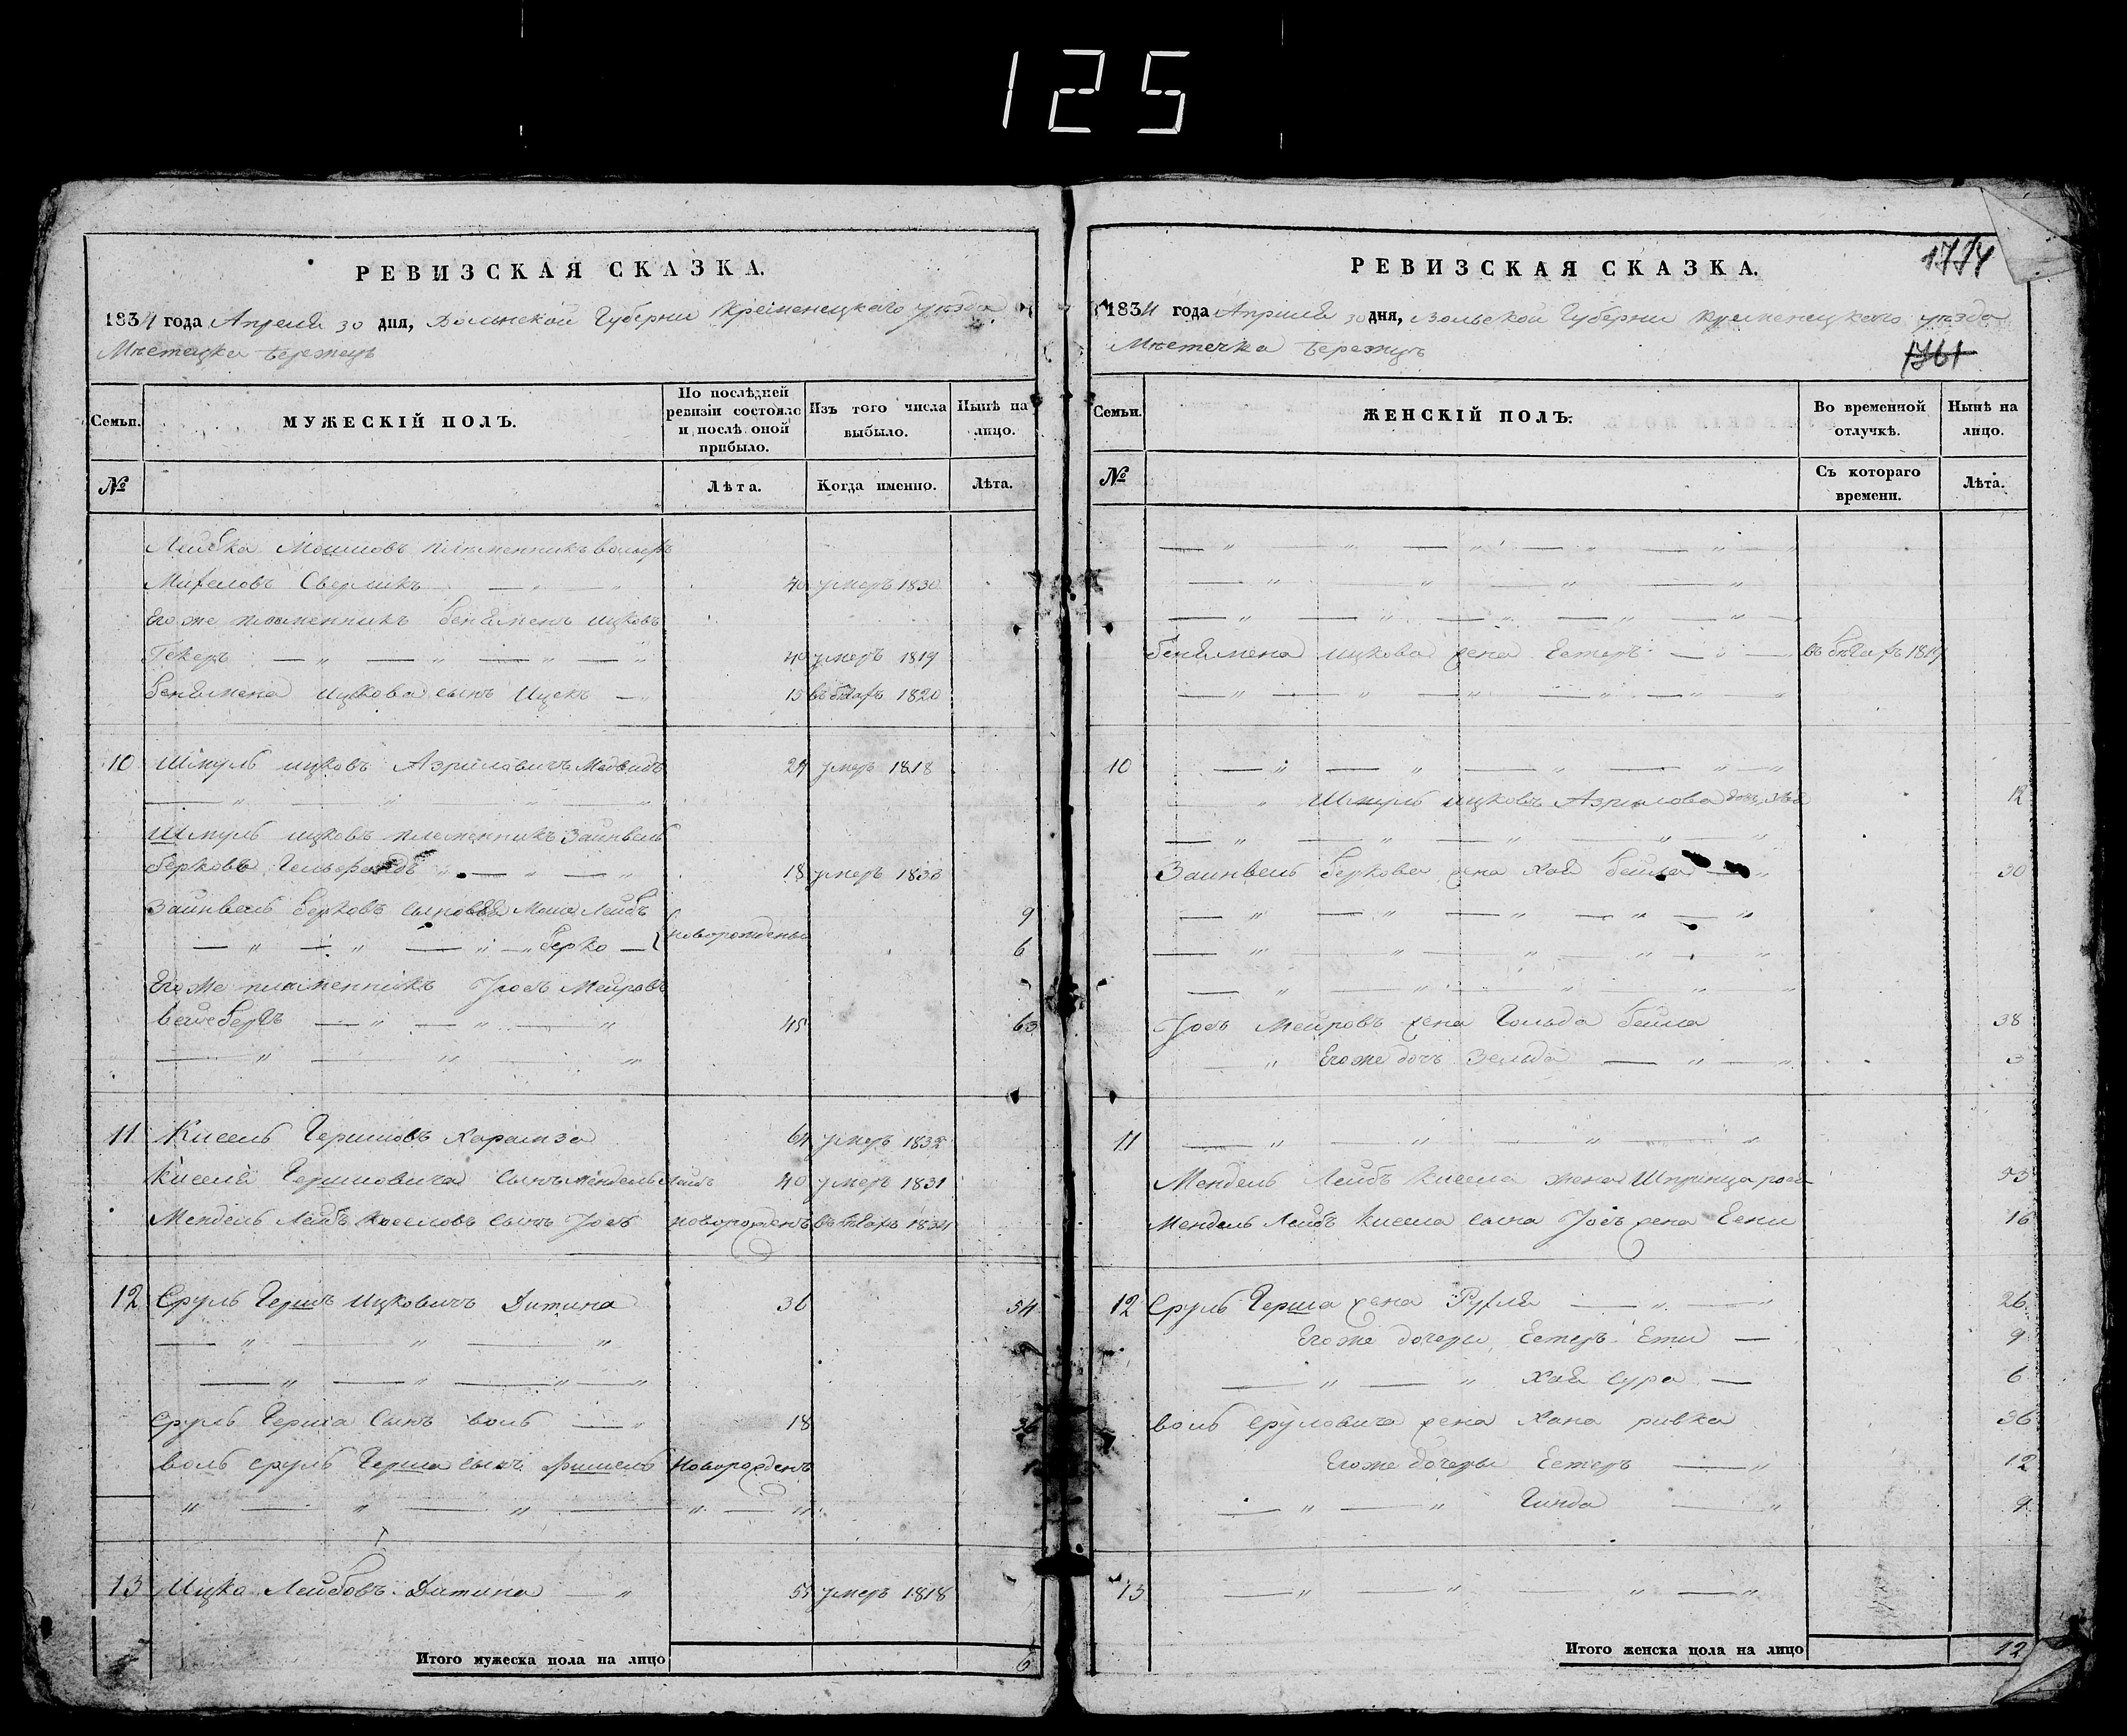 125
РЕВИЗСКАЯ СКАЗКА.
1834 года Апреля 30 дня, Волынской Губерни Кременецкаго уѣзда
Мѣстечка Бережцъ
Семьи.
МУЖЕСКІЙ ПОЛЪ.
По послѣдней ревизіи состояло и послѣ оной прибыло.
Изъ того числа выбыло.
Нынѣ на лицо.
№
Лѣта.
Когда именно.
Лѣта.
Лейбка Мошковъ племенникъ
40 умеръ 1830
Его же племенникъ Бениаменъ Ицковъ
40 умеръ 1819
Бениамена Ицкова сынъ Ицекъ 15 въ бѣгахъ 1820
10 Шмуль Ицковъ Азриловичъ Медвидь 24 умеръ 1818
Шмуль Ицковъ племенникъ Зайнвель
Берковъ 18 умеръ 1833
Зайнвель Берковъ сыновья Мошо Лейбъ 9
Берко новорожденны 6
Его же племенникъ Іосъ Меировъ
45 63
11 Кисель Гершковъ 64 умеръ 1832
Киселя Гершковича сынъ Мендель Лейбъ 40 умеръ 1831
Мендель Лейбъ Киселовъ сынъ Іосъ новорожденъ въ бѣгахъ 1834
12 Сруль Гершъ Ицковичъ Дитина 36 54
Сруль Герша сынъ Воль 18 36
Воль Сруль Герша сынъ Фишель новорожденъ
13 Ицка Лейбовъ Дитина 55 умеръ 1818
Итого мужеска пола на лицо 6
РЕВИЗСКАЯ СКАЗКА.
1774
1834 года Априля 30 дня, Вольской Губерни Кременецкаго уѣзда
Мѣстечка Бережцъ
1761
Семьи.
ЖЕНСКІЙ ПОЛЪ.
Во временной отлучкѣ.
Нынѣ на лицо.
№
Съ котораго времени.
Лѣта.
Бениамена Ицкова жена Естеръ въ бѣгахъ 1819
10
Шмуль Ицковъ Азрилова дочь 12
Зайнвель Беркова жена Хая Бейла 30
Іосъ Меировъ жена Гольда Бейла 38
Его же дочь Зельда 3
11
Мендель Лейбъ Кисела жена Шпринца 53
Мендель Лейбъ Кисела сына Іосъ жена Сени 16
12 Сруль Герша жена Рухля 26
Его же дочери Естеръ Ети 9
Хая Сура 6
Воль Сруловича жена Хана Ривка 36
Его же дочери Естеръ 12
Гинда 9
13
Итого женска пола на лицо 12